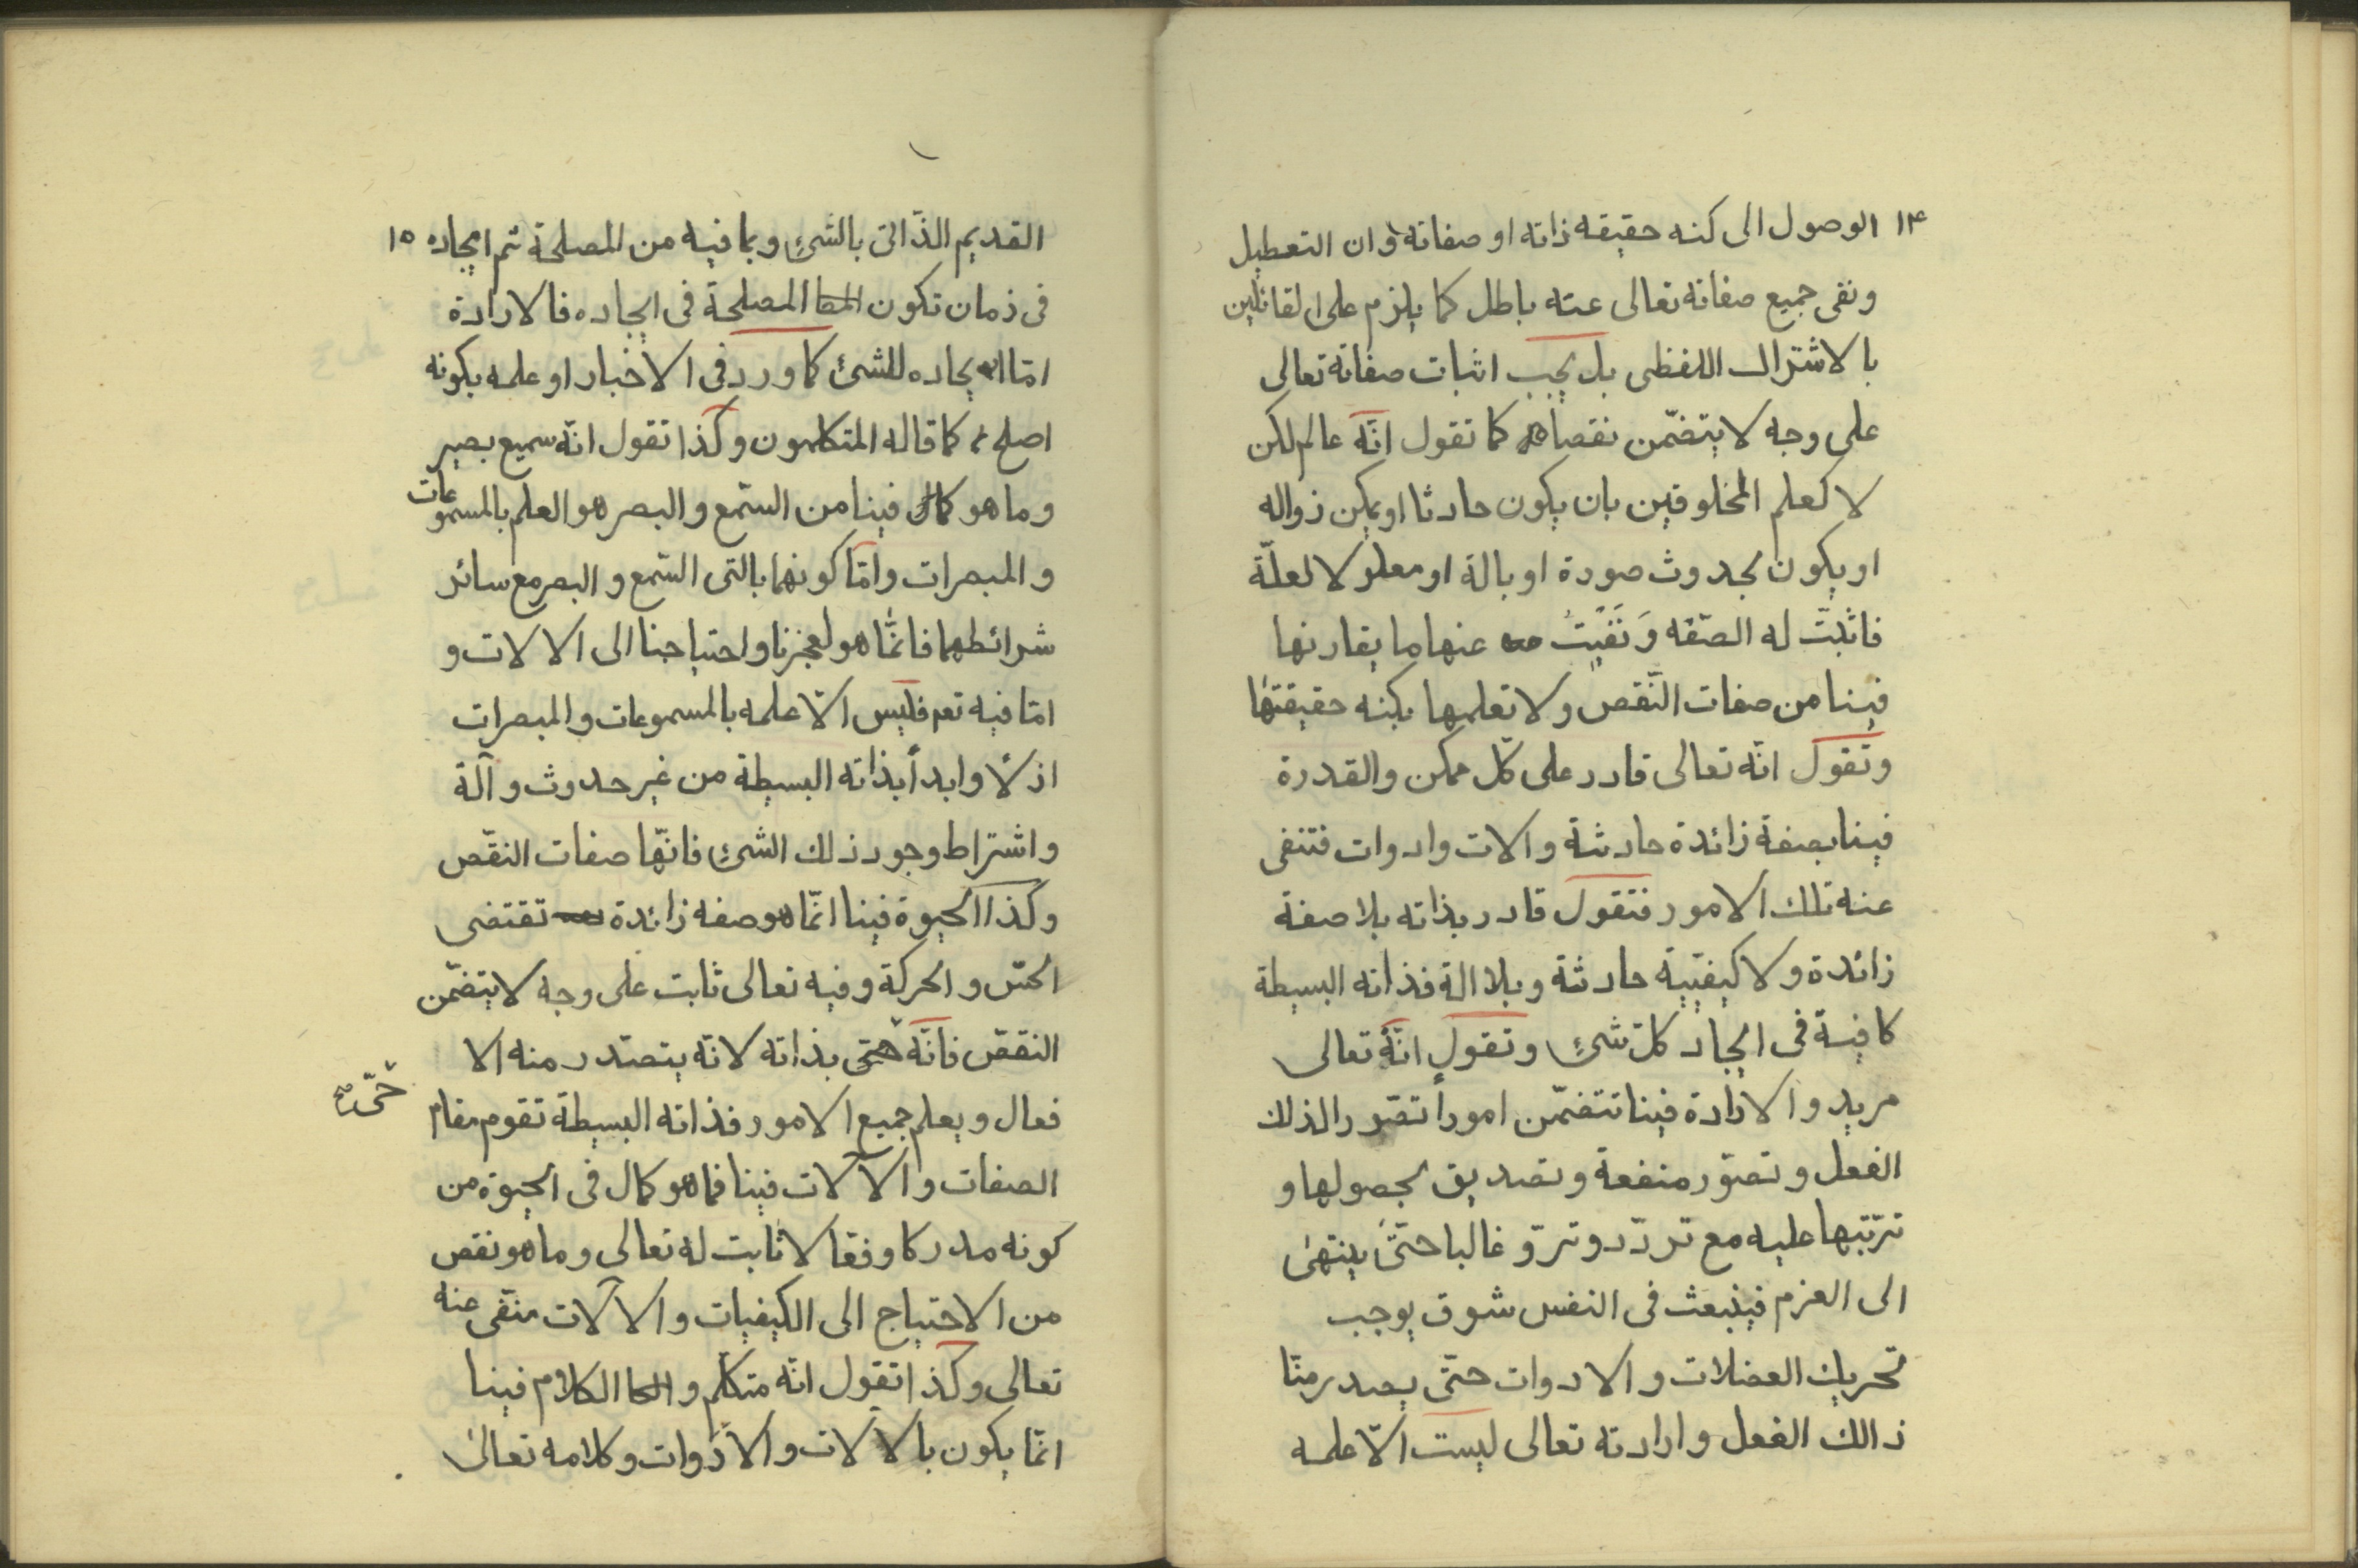 ١٤ الوصول الى كنه حقيقه ذاته او صفاته وان التعطيل
ونفى جميع صفاته تعالى عنه باطل كما يلزم على القائلين
بالاشتراك اللفظى بل يجب اثبات صفاته تعالى
على وجه لا يتضمّن نقصا كما تقول انّه عالم لكن
لا كعلم المخلوقين بان يكون حادثا او يمكن زواله
او يكون بحدوث صورة او بالة او معلولا لعلّة
فاثبتّ له الصّفه وَنَفَيْتُ عنها ما يقارنها
فينا من صفات النّقص ولا تعلمها بكنه حقيقتها
وتقول انّه تعالى قادر على كلّ ممكن والقدرة
فينا بصفة زائدة حادثة والات وادوات فتنفى
عنه تلك الامور فتقول قادر بذاته بلا صفة
زائدة ولا كيفيّة حادثة وبلا الة فذاته البسيطة
كافية فى ايجاد كلّ شئٍ وتقول انّهُ تعالى
مريد والارادة فينا تتضمّن اموراً تصّور الذلك
الفعل وتصوّر منفعة وتصديق بحصولها و
ترتبها عليه مع تردّد وتروّ غالبا حتّى ينتهى
الى العزم فينبعث فى النفس شوق يوجب
تحريك العضلات والادوات حتّى يصدر منّا
ذالك الفعل وارادته تعالى ليست الّا علمه
القديم الذّاتى بالشئِ وبما فيه من المصلحة ثم ايجاده ١٥
فى زمان تكون المصا المصلحة فى ايجاده فالارادة
امّا ايجاده للشئ كما ورد فى الاخبار او علمه بكونه
اصلح كما قاله المتكلمون وكذا تقول انّه سميع بصير
وما هو كمال فينا من السّمع والبصر هو العلم بالمسموعات
والمبصرات وامّا كونهما بالتى السّمع والبصر مع سائر
شرائطهما فانّما هو لعجزنا واحتياجنا الى الالات و
امّا فيه تعم فليس الّا علمه بالمسموعات والمبصرات
ازلاً وابداً بذاته البسيطة من غير حدوث وآلة
واشتراط وجود ذلك الشئِ فانّها صفات النقص
وكذا الحيوة فينا انّما هو صفه زائدة تقتضى
الحسّ والحركة وفيه تعالى ثابت على وجه لا يتضمّن
النقص فانّه حتى بذاته لانّه يتصدر منه الا
حىّ صح
فعال ويعلم جميع الامور فذاته البسيطة تقوم مقام
الصفات والآلات فينا فما هو كمال فى الحيوة من
كونه مدركا وفعّالا ثابت له تعالى وما هو نقص
من الاحتياج الى الكيفيات والآلات منفى عنه
تعالى وكذا تقول انّه متكلم والكا الكلام فينا
انّما يكون بالآلات والادوات وكلامه تعالى